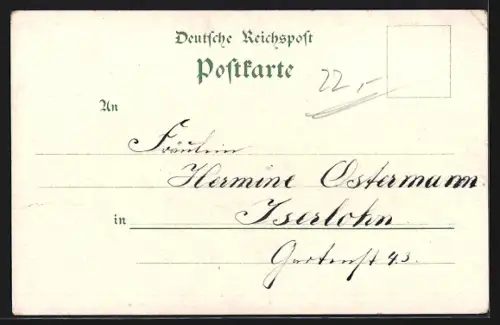 Deutsche Reichspost
Postkarte
22,-
An
Fräulein
Hermine Ostermann
in Iserlohn
Gartenst 43.